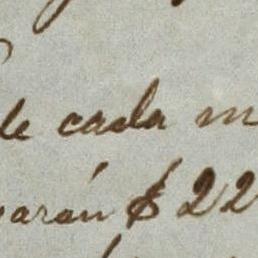 de cada m
varán $ 22